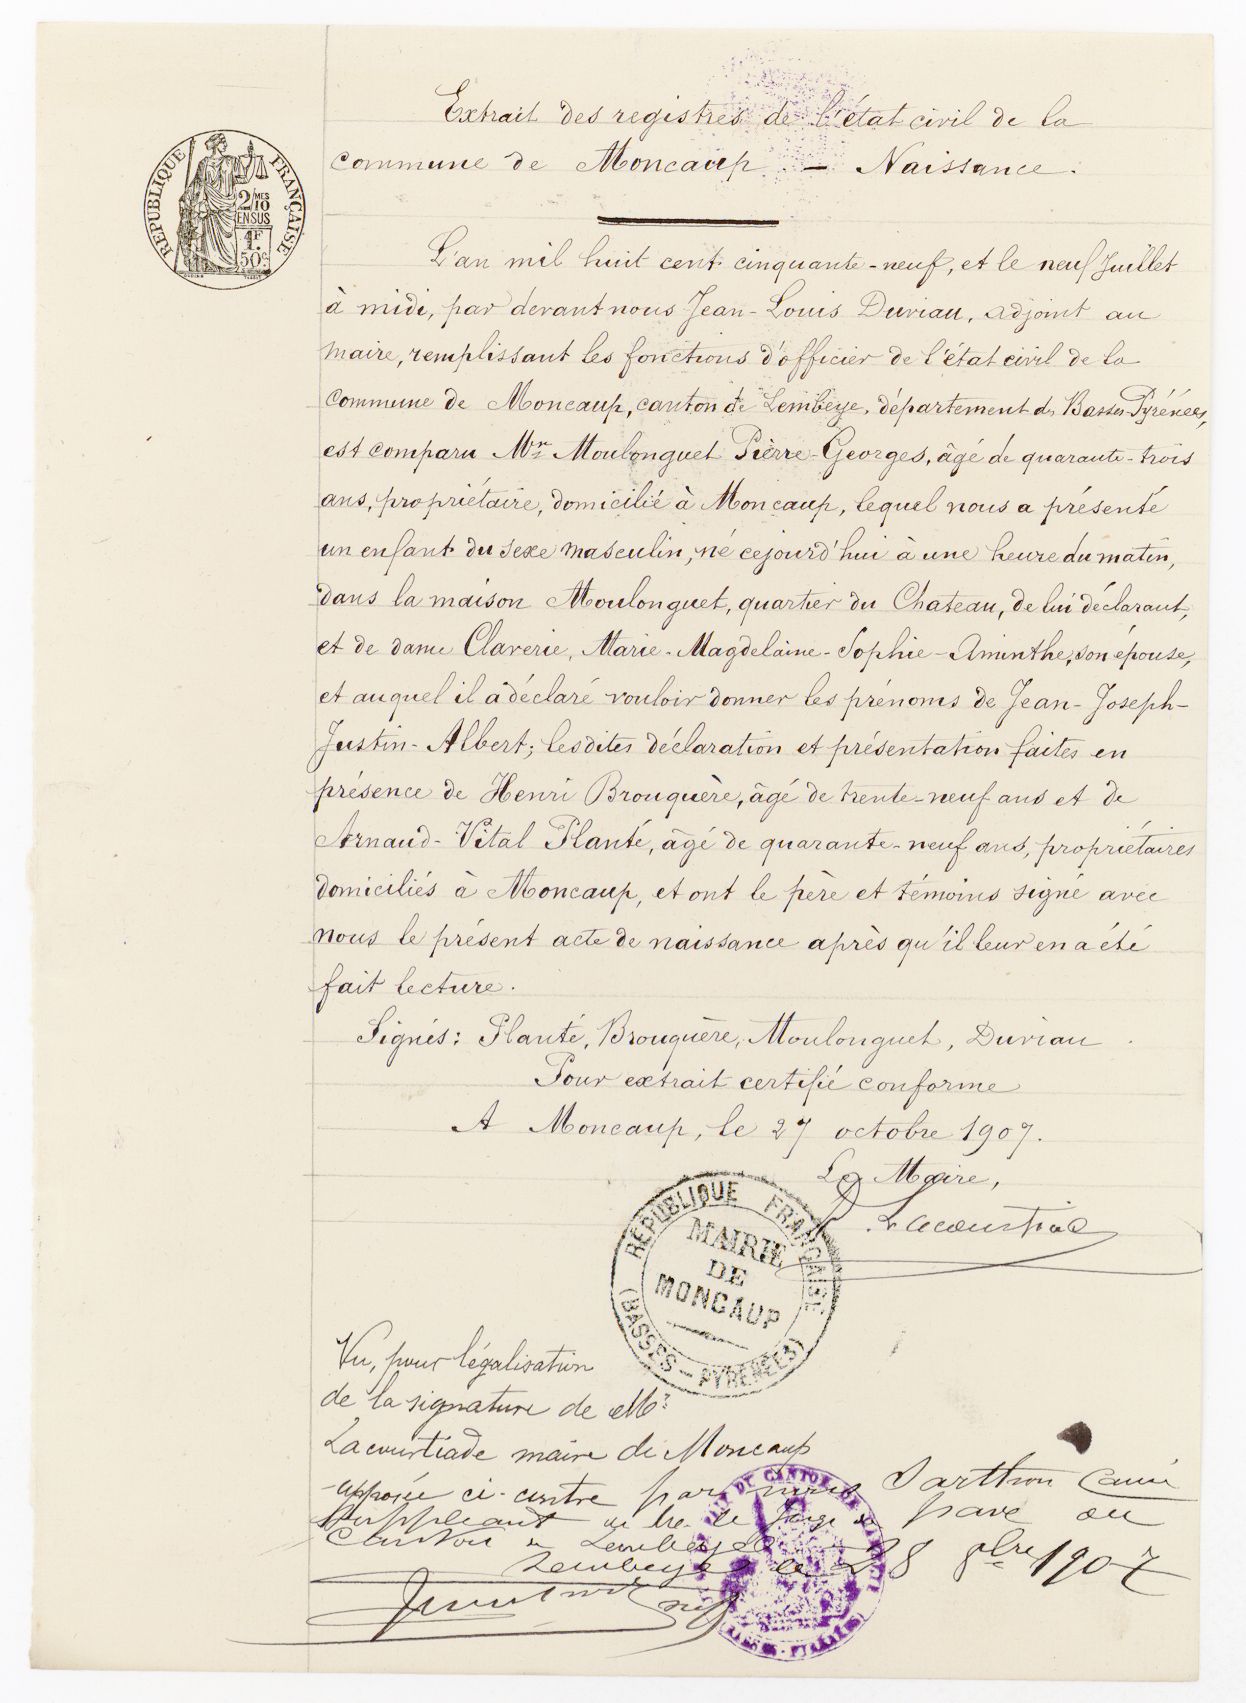 Extrait des registres de l'état civil de la
commune de Moncaup. — Naissance.
RÉPUBLIQUE FRANÇAISE
2/10 MES
EN SUS
1F.
50c
L'an mil huit cent cinquante-neuf, et le neuf Juillet
à midi, par devant nous Jean-Louis Duviau, adjoint au
maire, remplissant les fonctions d'officier de l'état civil de la
commune de Moncaup, canton de Lembeye, département des Basses-Pyrénées,
est comparu Mr Moulonguet Pierre-Georges, âgé de quarante-trois
ans, propriétaire, domicilié à Moncaup, lequel nous a présenté
un enfant du sexe masculin, né cejourd'hui à une heure du matin,
dans la maison Moulonguet, quartier du Chateau, de lui déclarant,
et de dame Claverie, Marie-Magdelaine-Sophie-Aminthe, son épouse,
et auquel il a déclaré vouloir donner les prénoms de Jean-Joseph-
Justin-Albert; lesdites déclaration et présentation faites en
présence de Henri Brouquère, âgé de trente-neuf ans et de
Arnaud-Vital Planté, âgé de quarante-neuf ans, propriétaires
domiciliés à Moncaup, et ont le père et témoins signé avec
nous le présent acte de naissance après qu'il leur en a été
fait lecture.
Signés: Planté, Brouquère, Moulonguet, Duviau.
Pour extrait certifié conforme
A Moncaup, le 27 octobre 1907.
Le Maire,
Lacourtiade
RÉPUBLIQUE FRANÇAISE
MAIRIE
DE
MONCAUP
(BASSES-PYRÉNÉES)
Vu, pour légalisation
de la signature de Mr
Lacourtiade maire de Moncaup
apposée ci-contre par nous
Suppléant de Mr le Juge de paix du
Canton de Lembeye
Lembeye le 28 8bre 1907